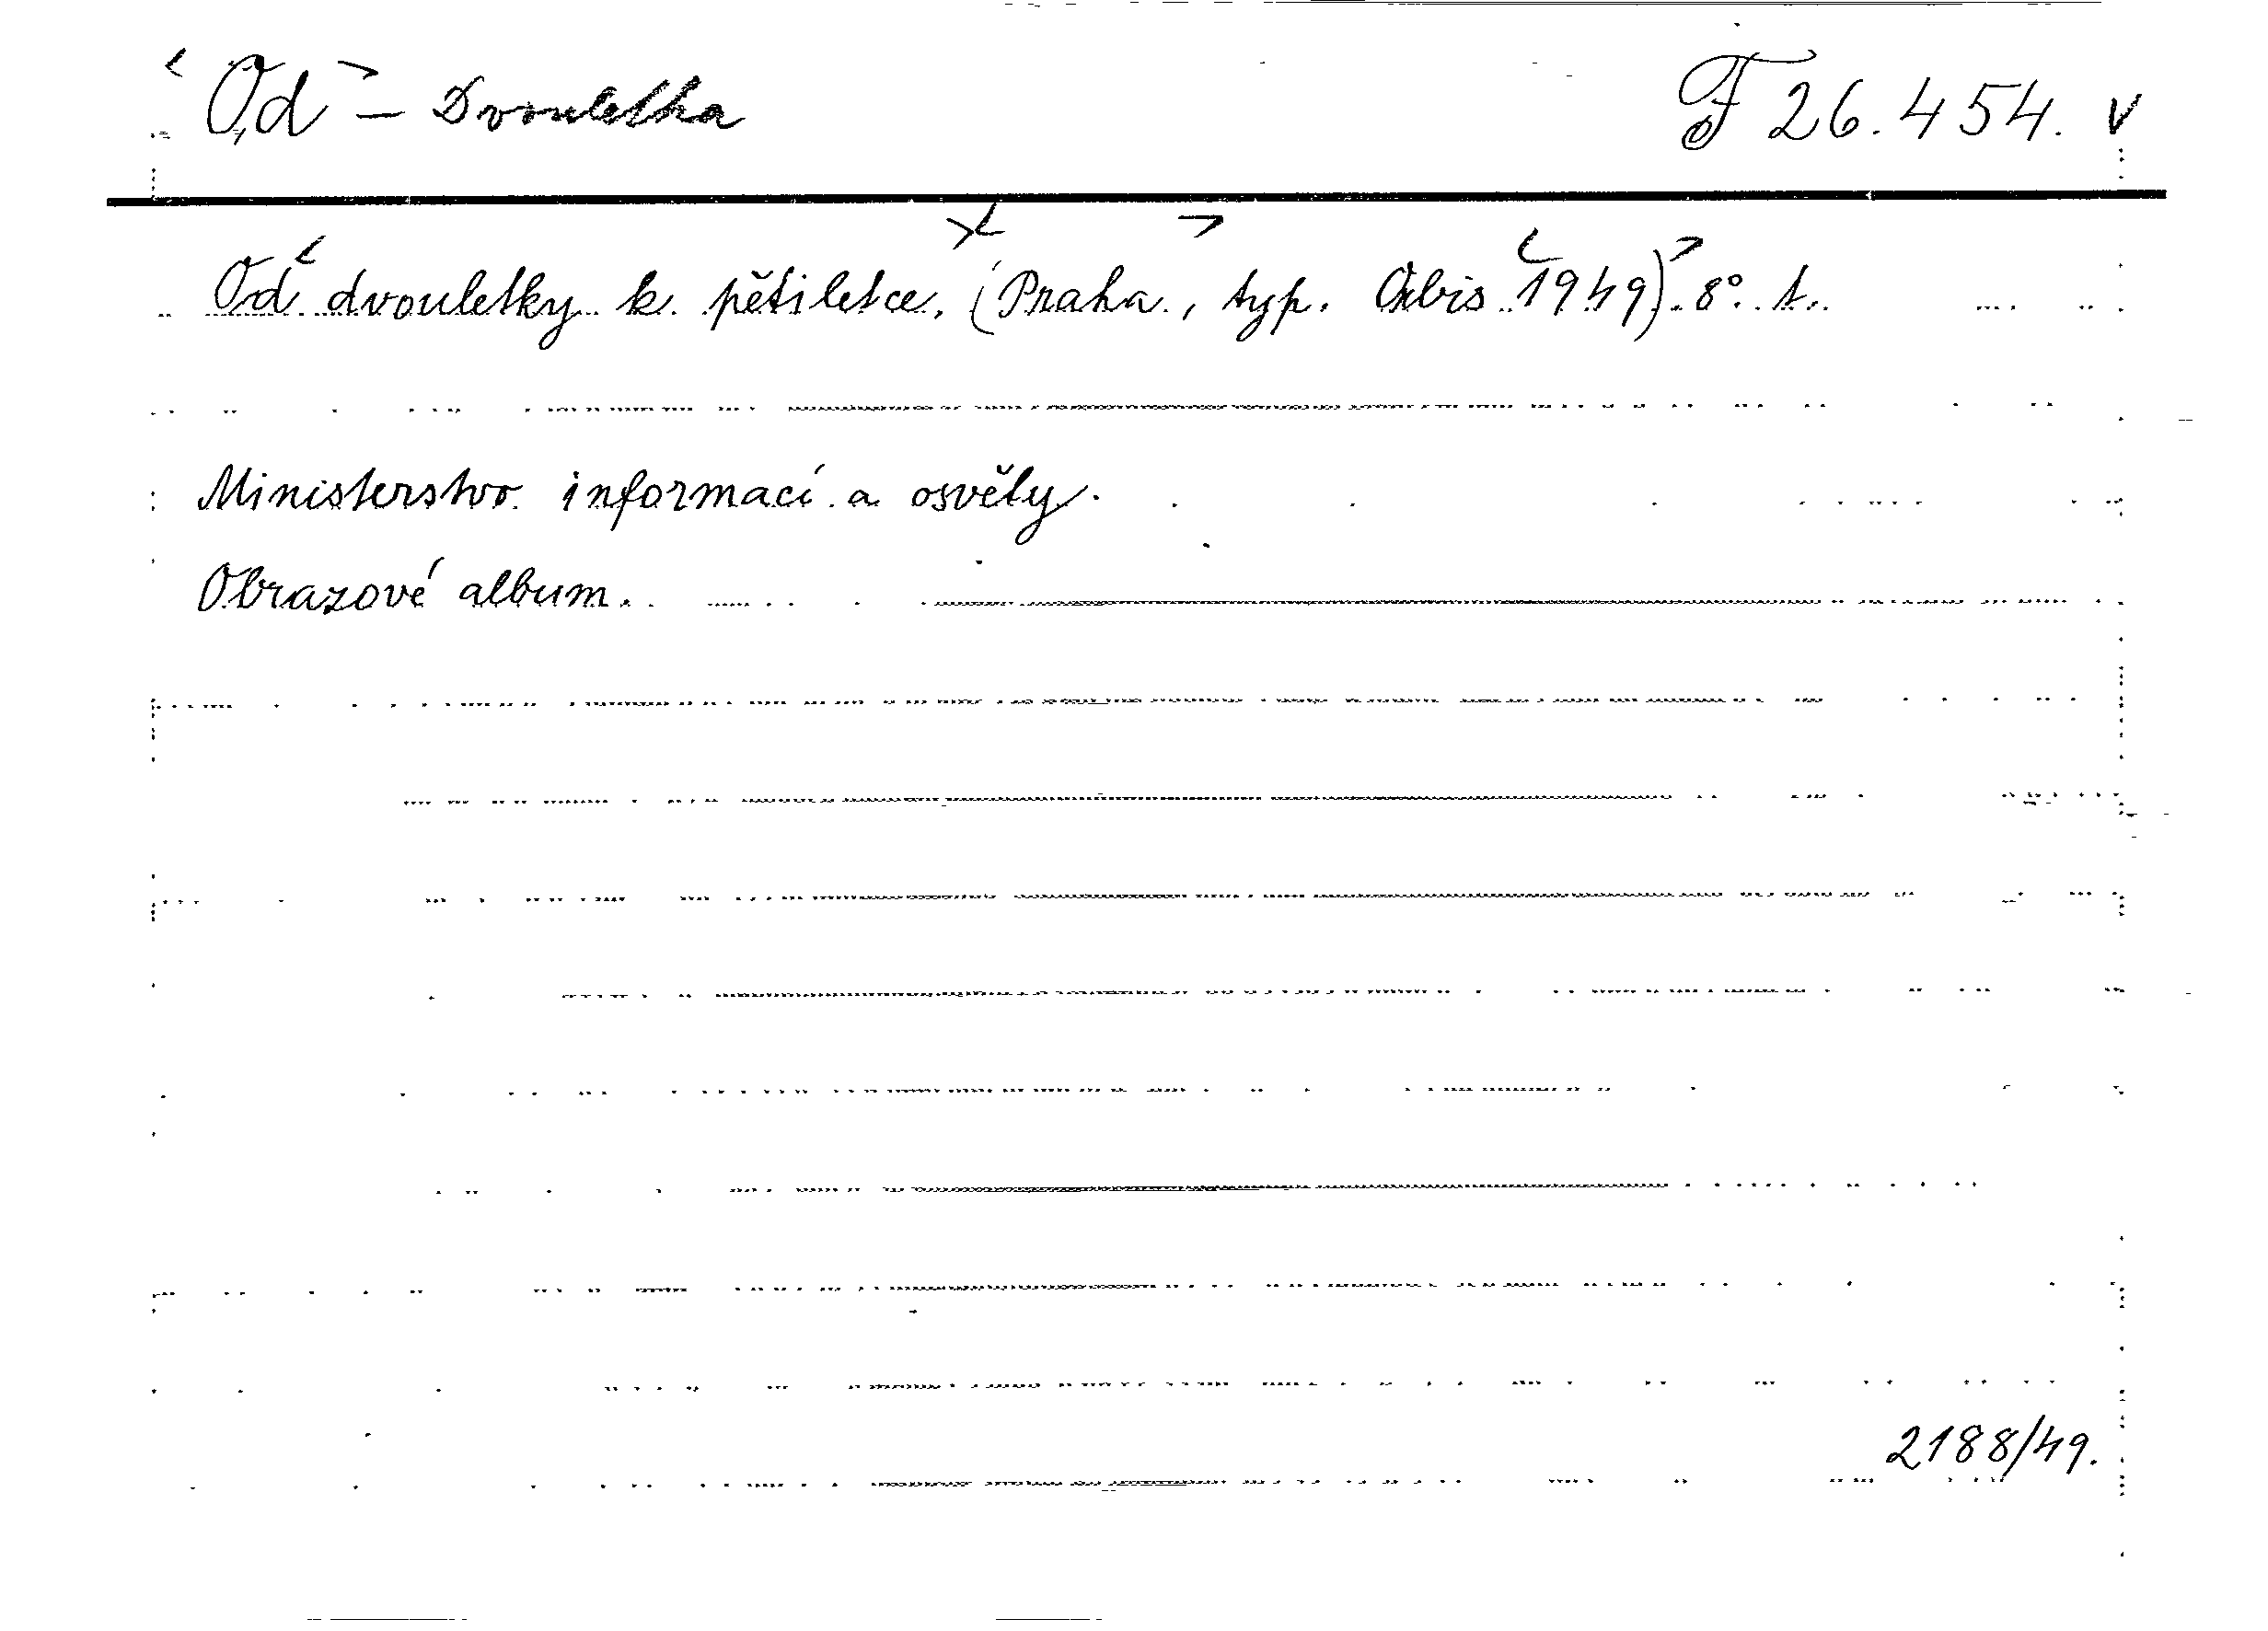 Od – Dvouletka F 26.454. v
Od dvouletky k pětiletce. (Praha, typ. Orbis 1949). 8°. t.
Ministerstvo informací a osvěty.
Obrazové album.
2188/49.